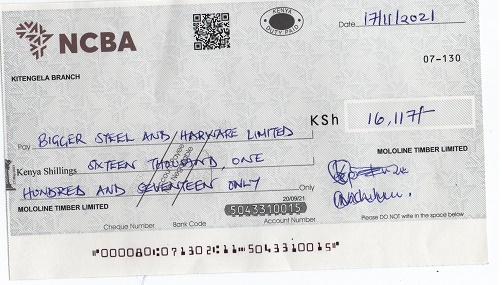 NCBA
KENYA
DUTY PAID
Date 17/11/2021
07-130
KITENGELA BRANCH
KSh 16,117/-
Pay BIGGER STEEL AND HARWARE LIMITED
Kenya Shillings SIXTEEN THOUSAND, ONE
HUNDRED AND SEVENTEEN ONLY Only
Account Payee
Not Negotiable
MOLOLINE TIMBER LIMITED
MOLOLINE TIMBER LIMITED
20/09/21
5043310015
Cheque Number Bank Code Account Number
Please DO NOT write in the space below
"000080:071302:11"5043310015"